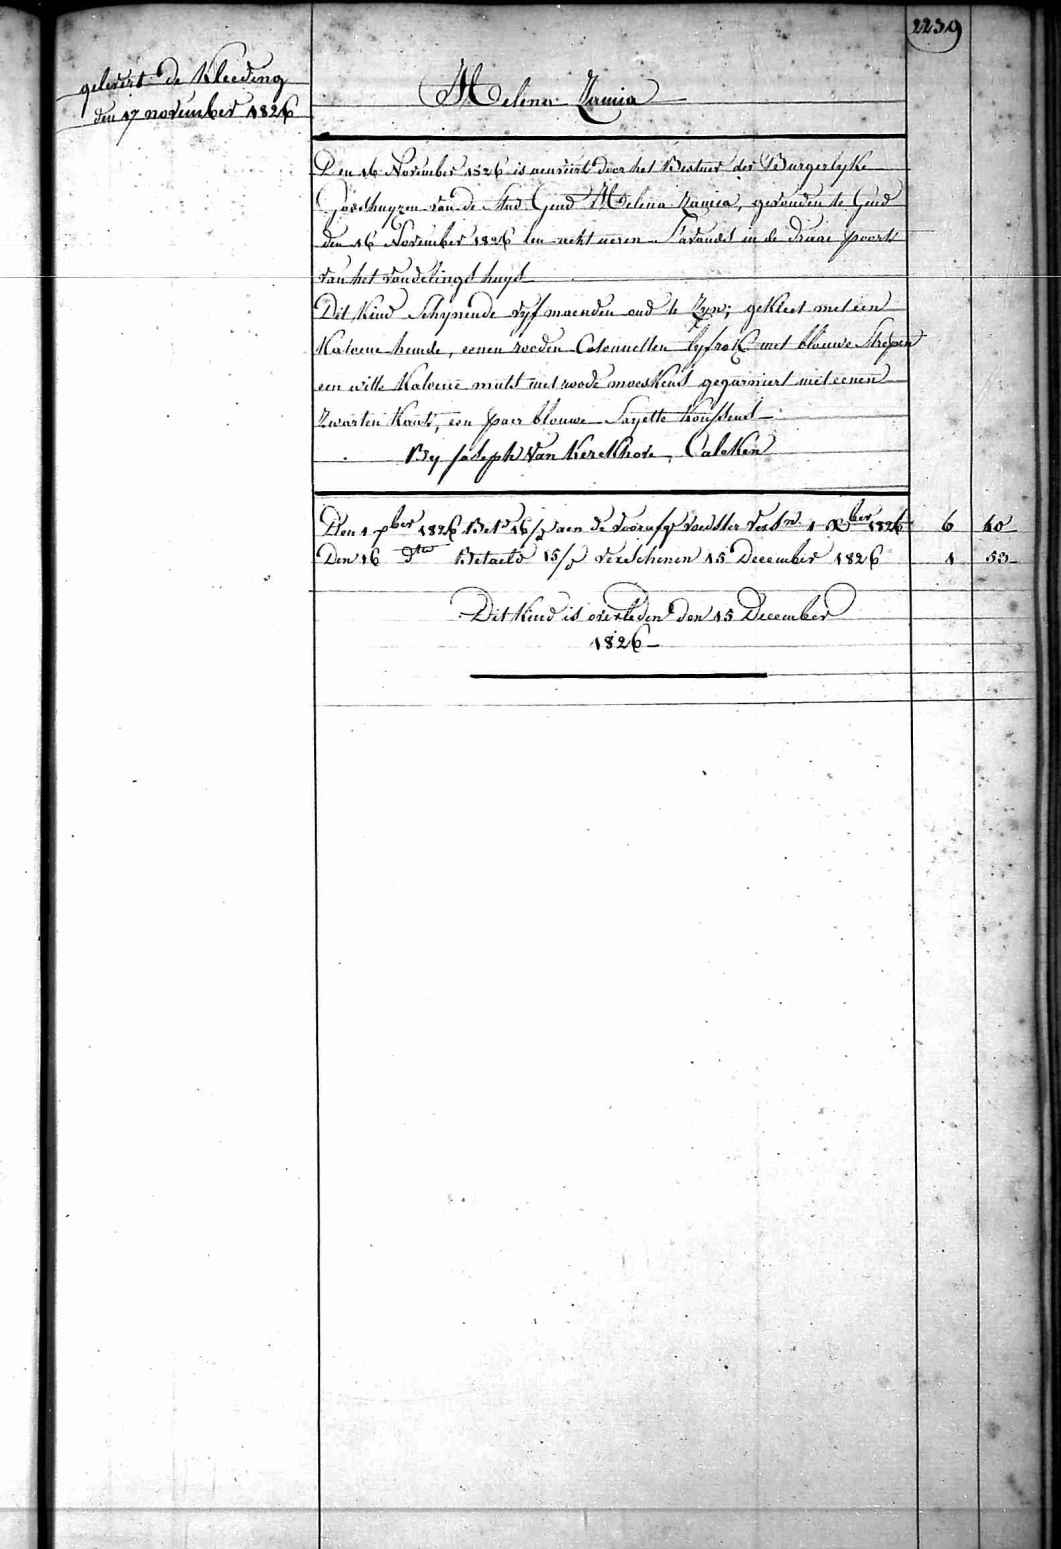 2239
gelevert de Kleeding
den 17 november 1826
Melina Zamia
Den 16 November 1826 is aenveird door het Bestuer der Burgerlyke
Godshuyzen van de Stad Gend Melina Zamia, gevonden te Gend
den 16 November 1826 ten acht ueren S'avonds in de draai poort
van het vondelings huys
Dit Kind Schynende vyf maenden oud te Zyn; gekleet met een
Katoene hemde, eenen rooden Colonnetten lyfrok met blauwe Strepen
een witte Katoene muts met roode moeskens gegarniert met eenen
Zwarten Kant, een paer blouwe Sayette Koussens
By Joseph Van Kerckhove, Calcken
Den 1 9ber 1826 Bet 16/ aen de voorafg voedster verSn 1 Xber 1826 6 40
Den 16 dto Betaeld 15/ verschenen 15 December 1826 1 53
Dit Kind is overleden den 15 December
1826